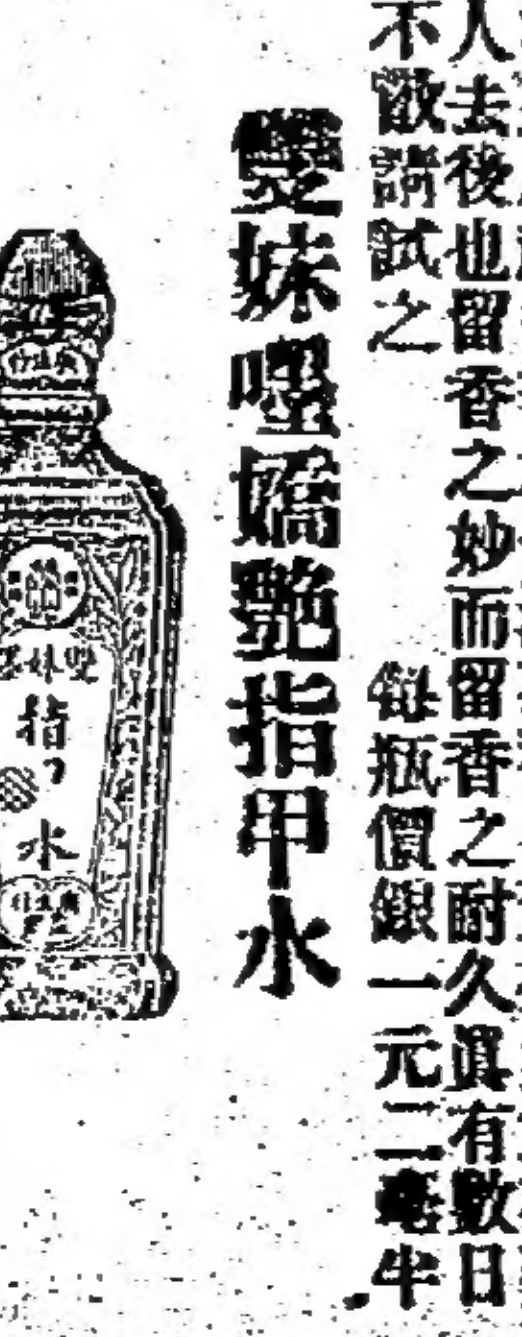 人去後也留香之妙而留香之耐久眞有數日
不散請試之 每瓶價銀一元二毫半
雙妹嚜嬌艷指甲水
雙妹嚜
指甲水